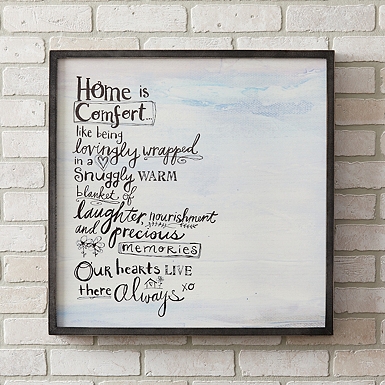 Home is
Comfort...
like being
lovingly wrapped
in a
Snuggly WARM
blanket of
laughter, nourishment
and precious
MEMORIES
Our hearts LIVE
there Always xo